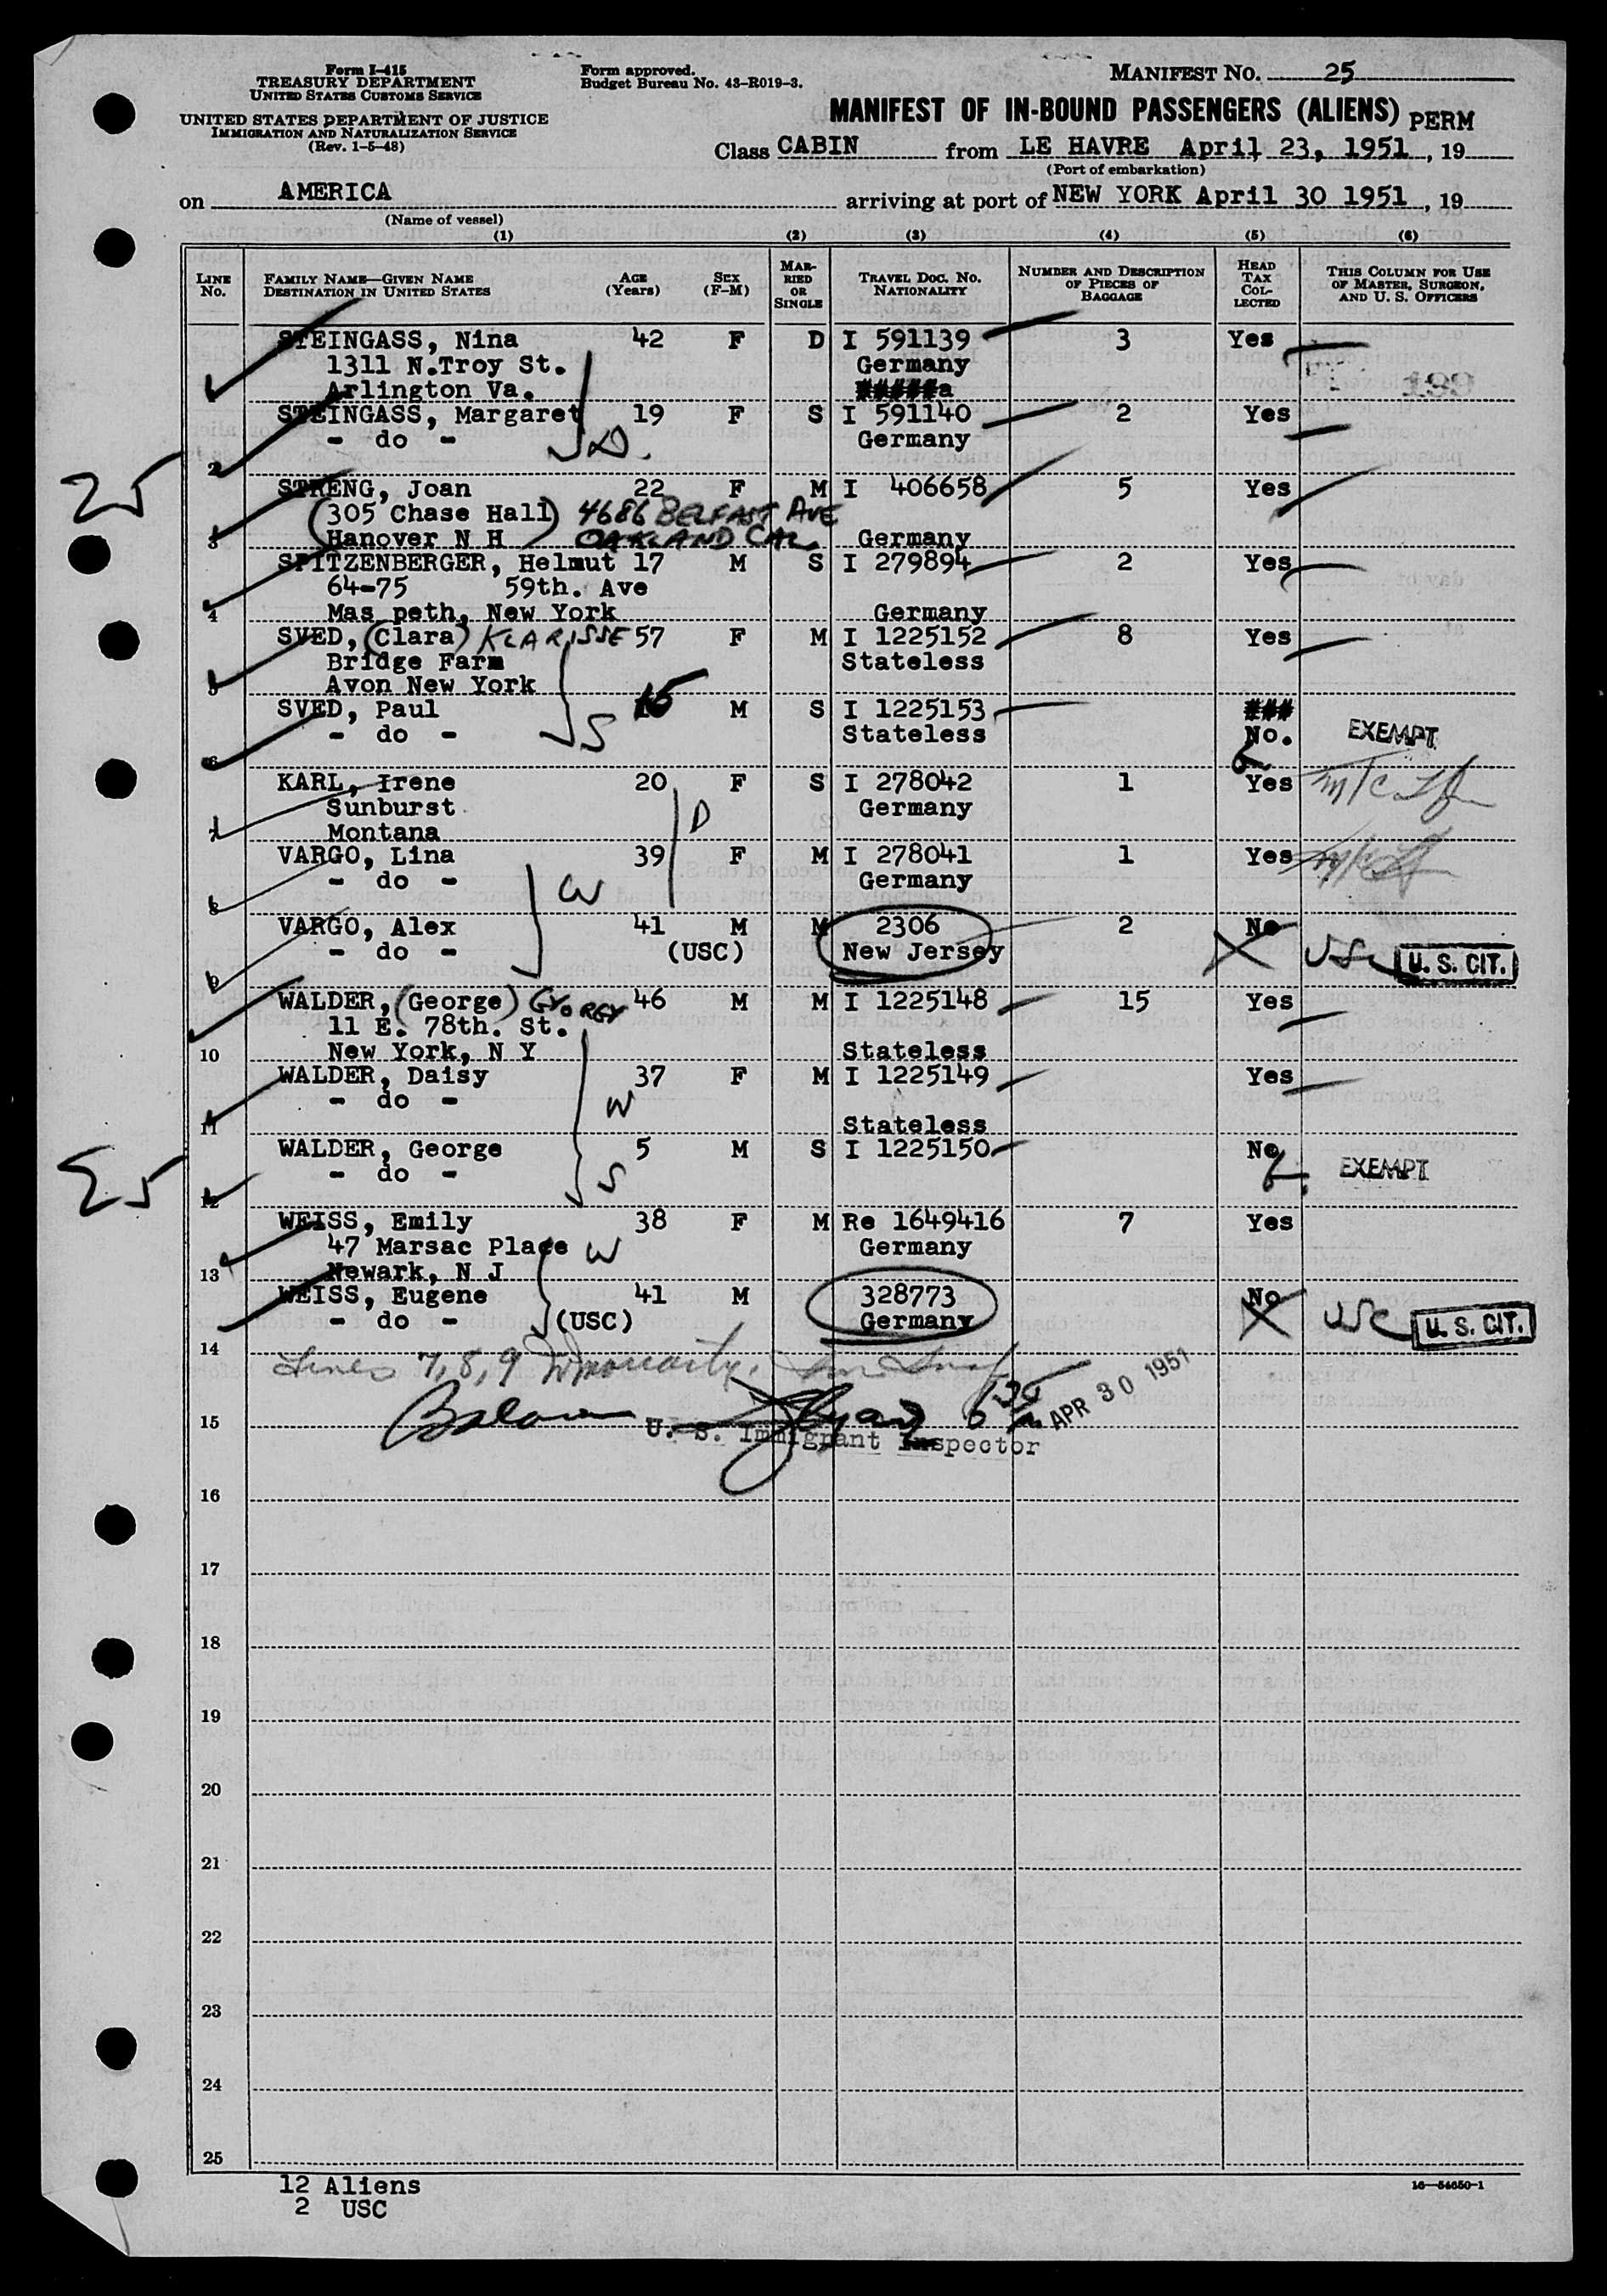 Form I-415
TREASURY DEPARTMENT
UNITED STATES CUSTOMS SERVICE
UNITED STATES DEPARTMENT OF JUSTICE
IMMIGRATION AND NATURALIZATION SERVICE
(Rev. 1-5-48)
Form approved.
Budget Bureau No. 43-R019-3.
MANIFEST NO. 25
MANIFEST OF IN-BOUND PASSENGERS (ALIENS) PERM
Class CABIN from LE HAVRE April 23, 1951, 19
(Port of embarkation)
on AMERICA arriving at port of NEW YORK April 30 1951, 19
(Name of vessel)
(1) (2) (3) (4) (5) (6)
LINE No. FAMILY NAME—GIVEN NAME DESTINATION IN UNITED STATES AGE (Years) SEX (F-M) MARRIED OR SINGLE TRAVEL DOC. NO. NATIONALITY NUMBER AND DESCRIPTION OF PIECES OF BAGGAGE HEAD TAX COLLECTED THIS COLUMN FOR USE OF MASTER, SURGEON, AND U. S. OFFICERS
STEINGASS, Nina 42 F D I 591139 3 Yes
1311 N.Troy St. Germany 199
1 Arlington Va.
STEINGASS, Margaret 19 F S I 591140 2 Yes
- do - D. Germany
2
25
STRENG, Joan 22 F M I 406658 5 Yes
(305 Chase Hall) 4686 BELFAST AVE
3 Hanover N H OAKLAND CAL. Germany
SPITZENBERGER, Helmut 17 M S I 279894 2 Yes
64-75 59th. Ave
4 Mas peth, New York Germany
SVED, (Clara) KLARISSE 57 F M I 1225152 8 Yes
Bridge Farm Stateless
5 Avon New York
SVED, Paul M S I 1225153
- do - S Stateless No. EXEMPT
6
KARL, Irene 20 F S I 278042 1 Yes
Sunburst D Germany
7 Montana
VARGO, Lina 39 F M I 278041 1 Yes
- do - W Germany
8
VARGO, Alex 41 M M 2306 2 No
- do - (USC) New Jersey USC U. S. CIT.
9
WALDER, (George) GYORGY 46 M M I 1225148 15 Yes
11 E. 78th. St.
10 New York, N Y Stateless
WALDER, Daisy 37 F M I 1225149 Yes
- do - W
11 Stateless
25
WALDER, George 5 M S I 1225150 No
- do - S EXEMPT
12
WEISS, Emily 38 F M Re 1649416 7 Yes
47 Marsac Place W Germany
13 Newark, N J
WEISS, Eugene 41 M 328773 No
- do - (USC) Germany USC U. S. CIT.
14
Lines 7, 8, 9
APR 30 1951
15
U. S. Immigrant Inspector
16
17
18
19
20
21
22
23
24
25
12 Aliens
2 USC
16—54650-1